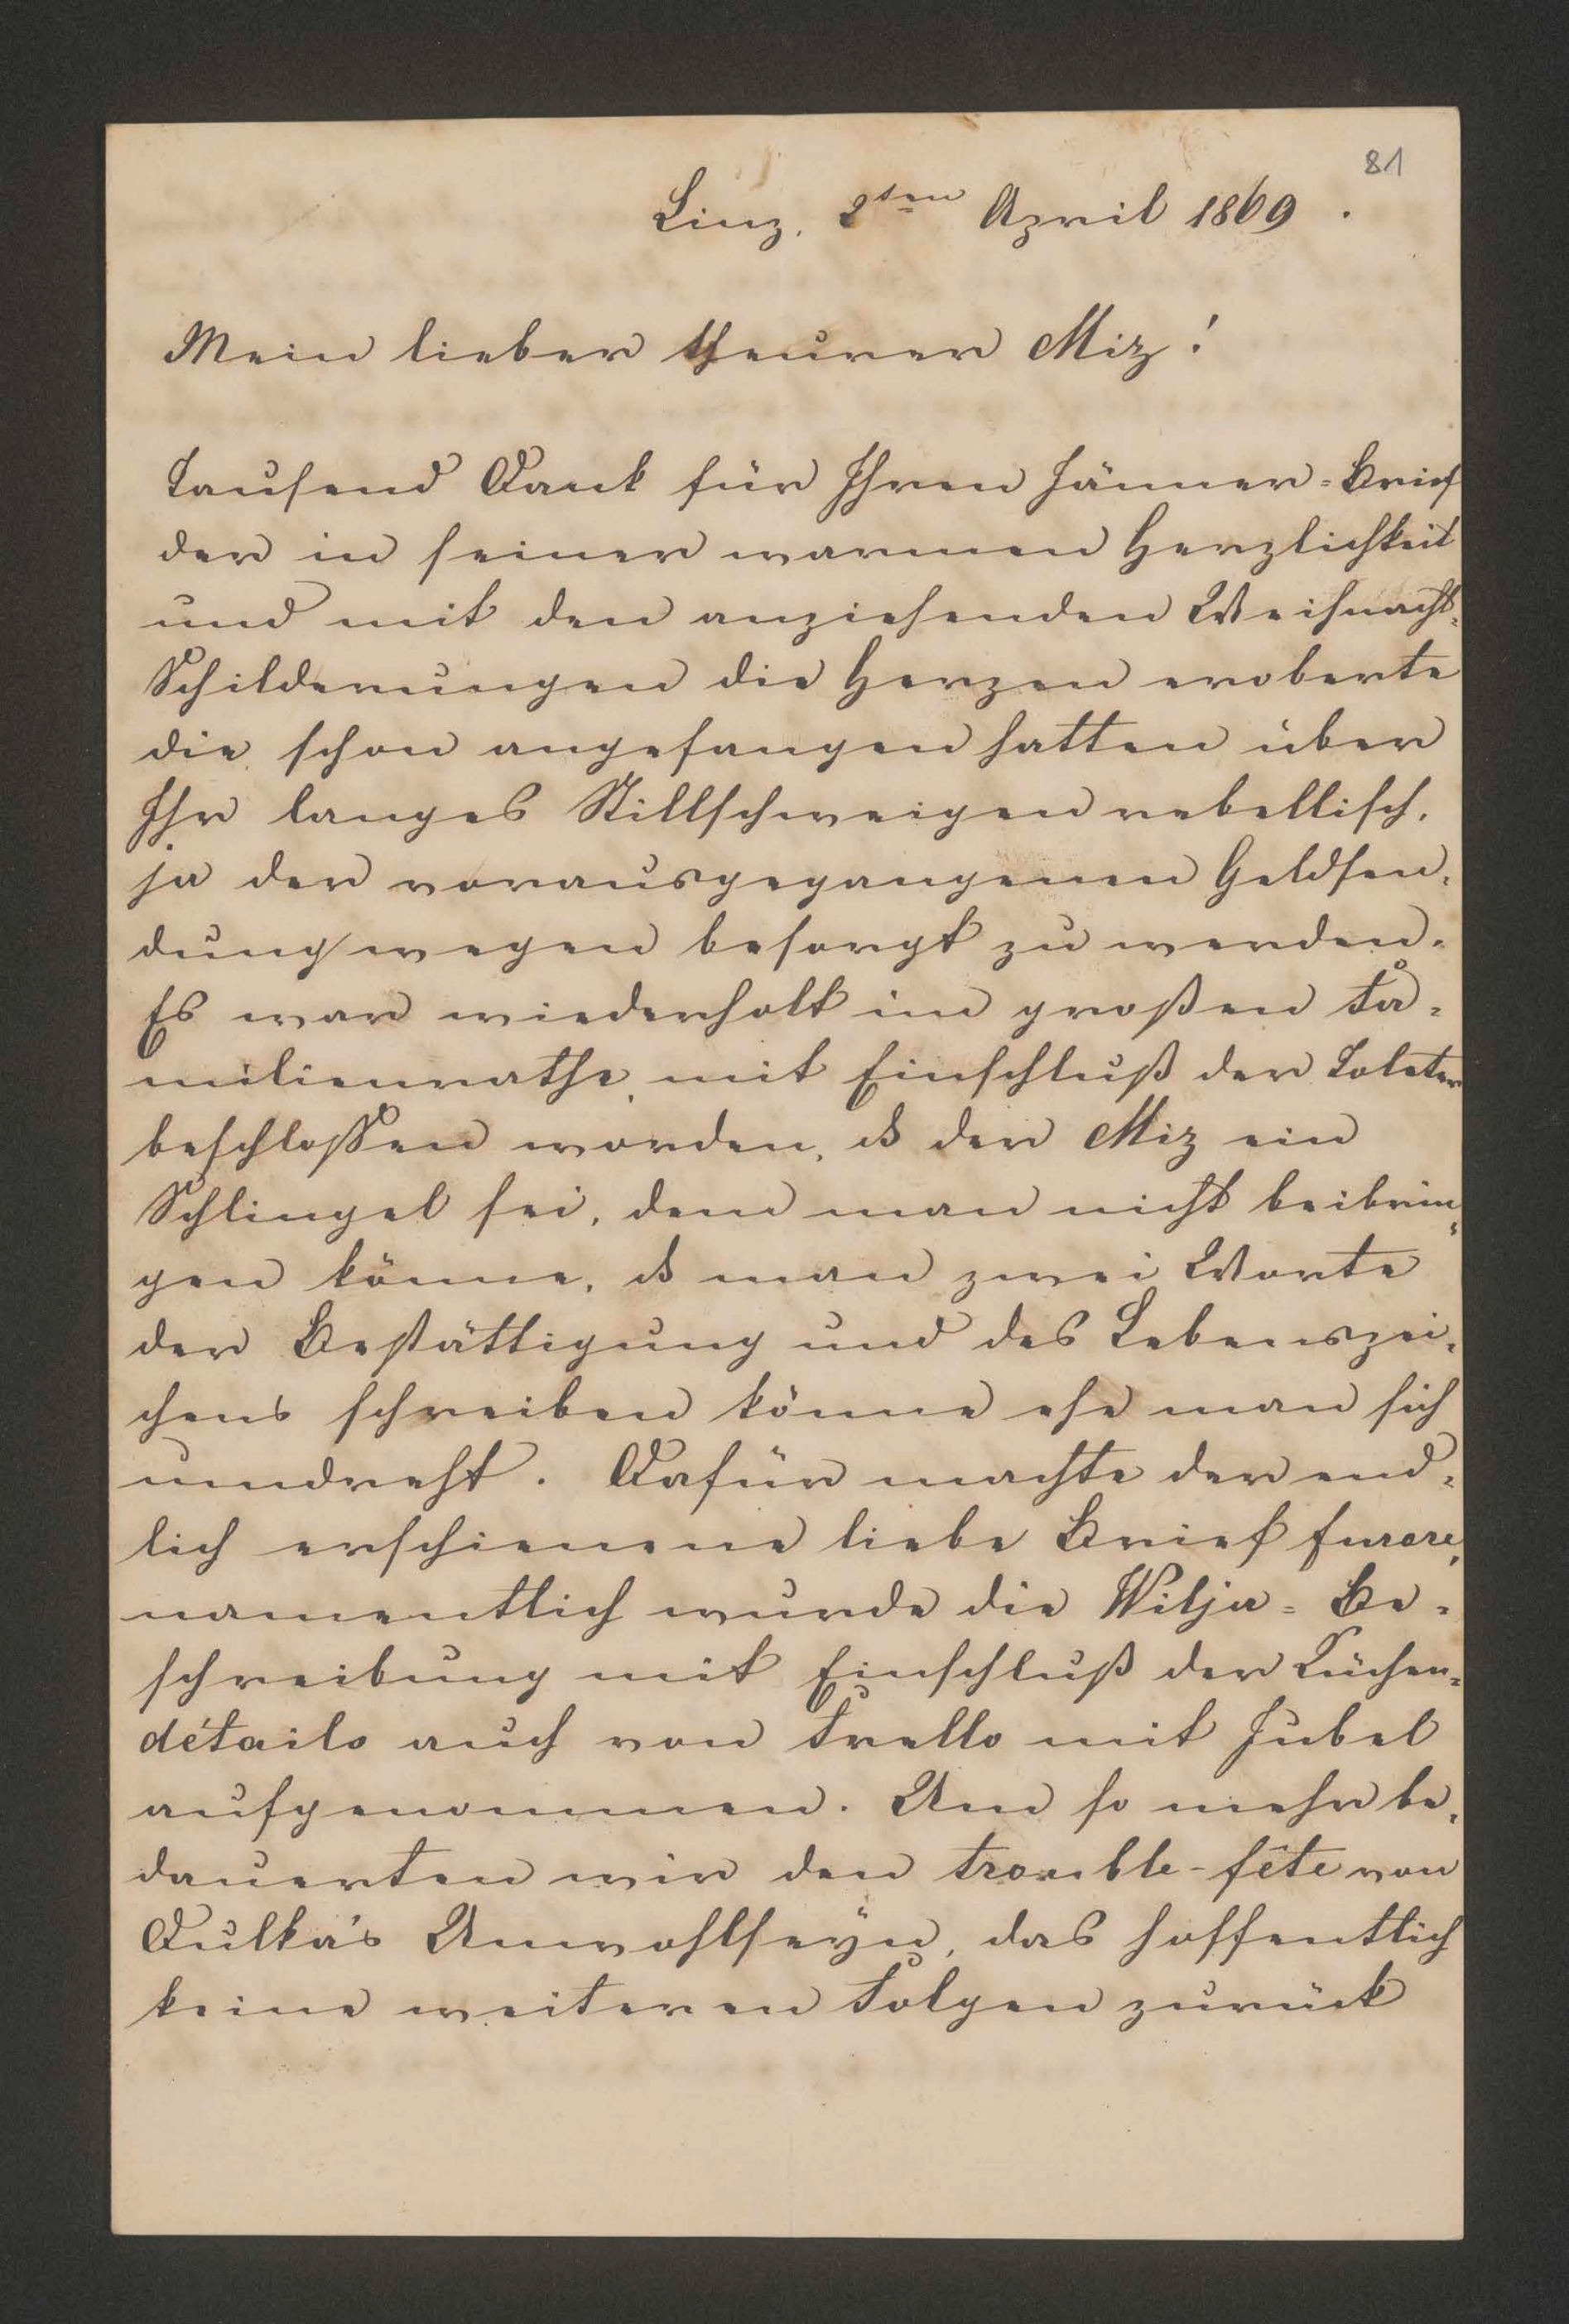 81
Linz, 2ten April 1869.
Mein lieber theurer Miz!
Tausend Dank für Ihren Jänner-Brief
der in seiner warmen Herzlichkeit
und mit den anziehenden Weihnacht-
Schilderungen die Herzen eroberte
die schon angefangen hatten über
Ihr langes Stillschweigen rebellisch,
ja der vorausgegangenen Geldsen-
dung wegen besorgt zu werden.
Es war wiederholt im großen Fa-
milienrathe, mit Einschluß der
beschlossen worden, dß der Miz ein
Schlingel sei, dem man nicht beibrin-
gen könne, dß man zwei Worte
der Bestättigung und des Lebenszei-
chens schreiben könne ehe man sich
umdreht. Dafür machte der end-
lich erschienene liebe Brief furore,
namentlich wurde die Wilja-Be-
schreibung mit Einschluß der Küchen-
détails auch von Trello mit Jubel
aufgenommen. Um so mehr be-
dauerten wir den trouble-fête von
Dulka's Unwohlseyn, das hoffentlich
keine weiteren Folgen zurück